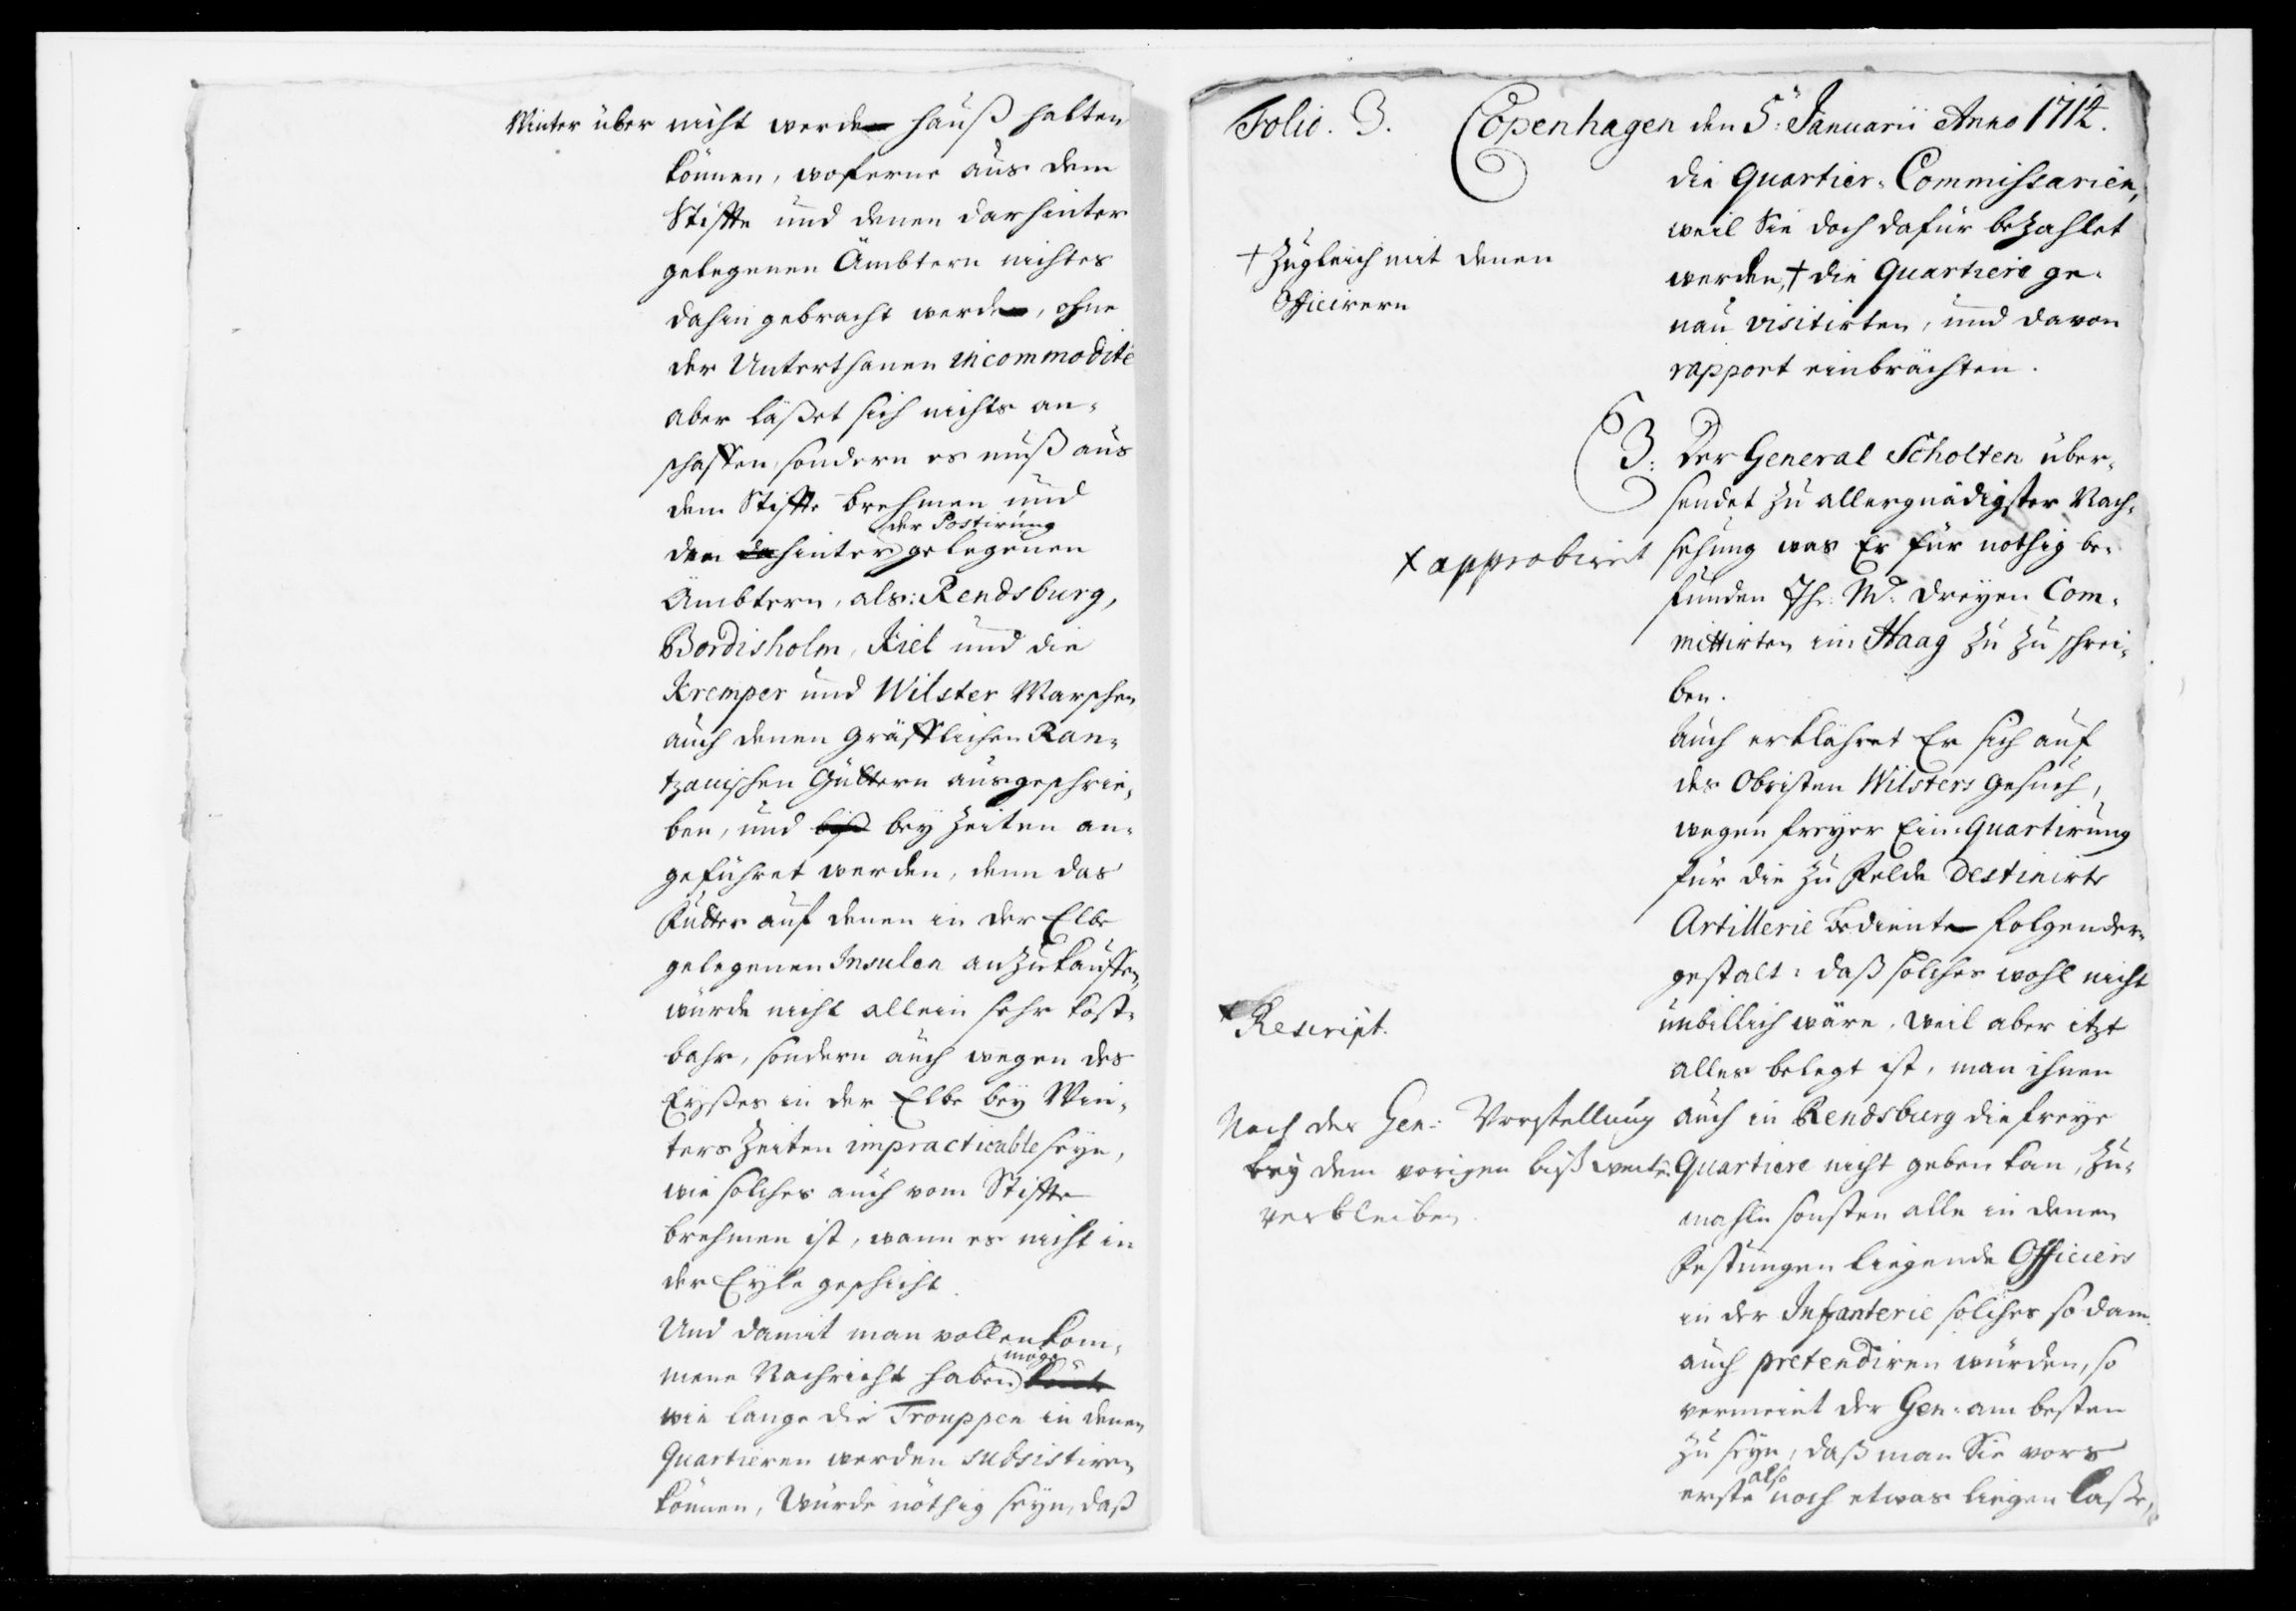 Winter über nicht werden hauß halten
können, woferne aus dem
Stiffte und denen darhinter
gelegenen Ämbtern nichtes
dahin gebracht werden, ohne
der Unterthanen incommodité
aber läßet sich nichts an-
schaffen, sondern es muß aus
dem Stiffte Brehmen und
der Postirung
den da hinter gelegenen
Ämbtern, als: Rendsburg,
Bordisholm, Kiel und die
Kremper und Wilster Marschen
auch denen Gräfflichen Ran-
tzauischen Güttern ausgeschrie-
ben, und biß bey Zeiten an-
geführet werden, denn das
Futter auf denen in der Elbe
gelegenen Insulen anzukauffen,
würde nicht allein sehr kost-
bahr, sondern auch wegen des
Eyßes in der Elbe bey Win-
ters Zeiten impracticable seyn,
wie solches auch vom Stiffte
Brehmen ist, wann es nicht in
der Eyle geschicht.
Und damit man vollenkom-
möge
mene Nachricht haben könte
wie lange die Trouppen in denen
Quartieren werden subsistiren
können, Würde nöthig seyn, daß
Folio. 3. Copenhagen den 5: Januarii Anno 1712.
die Quartier-Commissarien,
weil Sie doch dafür bezahlet
werden, † die Quartiere ge-
nau visitirten, und davon
rapport einbrächten.
† Zugleich mit denen
Officirern
3: Der General Scholten über-
sendet zu allergnädigster Nach-
sehung was Er für nöthig be-
funden Ih: M: dreyen Com-
mittirten im Haag zu zu schrei-
ben.
x approbiret
Auch erklähret Er sich auf
des Obristen Wilsters Gesuch,
wegen freyer Ein-Quartirung
für die zu Felde destinirte
Artillerie Bediente folgender-
gestalt: daß solches wohl nicht
unbillich wäre, weil aber itzt
alles belegt ist, man ihnen
auch in Rendsburg die freye
Quartiere nicht geben kan, zu-
mahln sonsten alle in denen
Festungen liegende Officiers
in der Infanterie solches so dann
auch pretendiren würden, so
vermeint der Gen: am besten
zu seyn, daß man Sie vors
also
erste noch etwas liegen laße,
x Rescript.
Nach des Gen: Vorstellung
bey dem vorigen biß weiter
verbleiben.